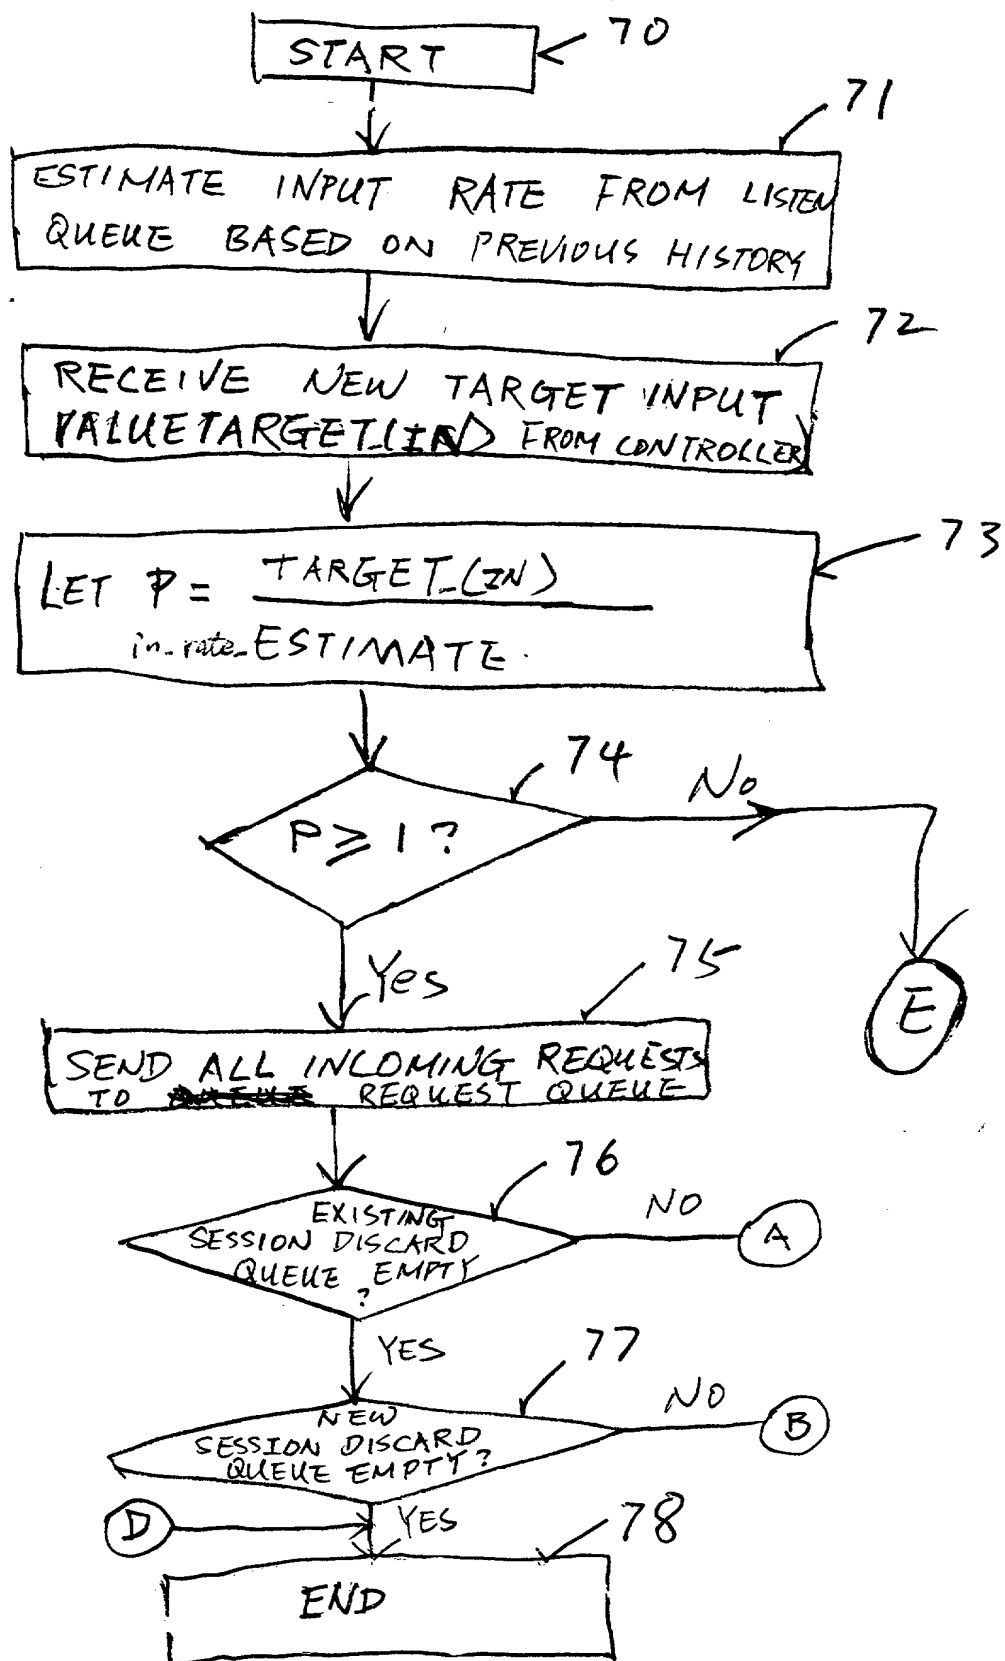 START
70
71
ESTIMATE INPUT RATE FROM LISTEN
QUEUE BASED ON PREVIOUS HISTORY
72
RECEIVE NEW TARGET INPUT
VALUE TARGET_(IN) FROM CONTROLLER
73
LET P = TARGET_(IN)
in_rate_ESTIMATE.
74
No
P ≥ 1 ?
E
Yes
75
SEND ALL INCOMING REQUESTS
TO REQUEST QUEUE
76
NO
A
EXISTING
SESSION DISCARD
QUEUE EMPTY
?
YES
77
NO
B
NEW
SESSION DISCARD
QUEUE EMPTY?
D
YES
78
END